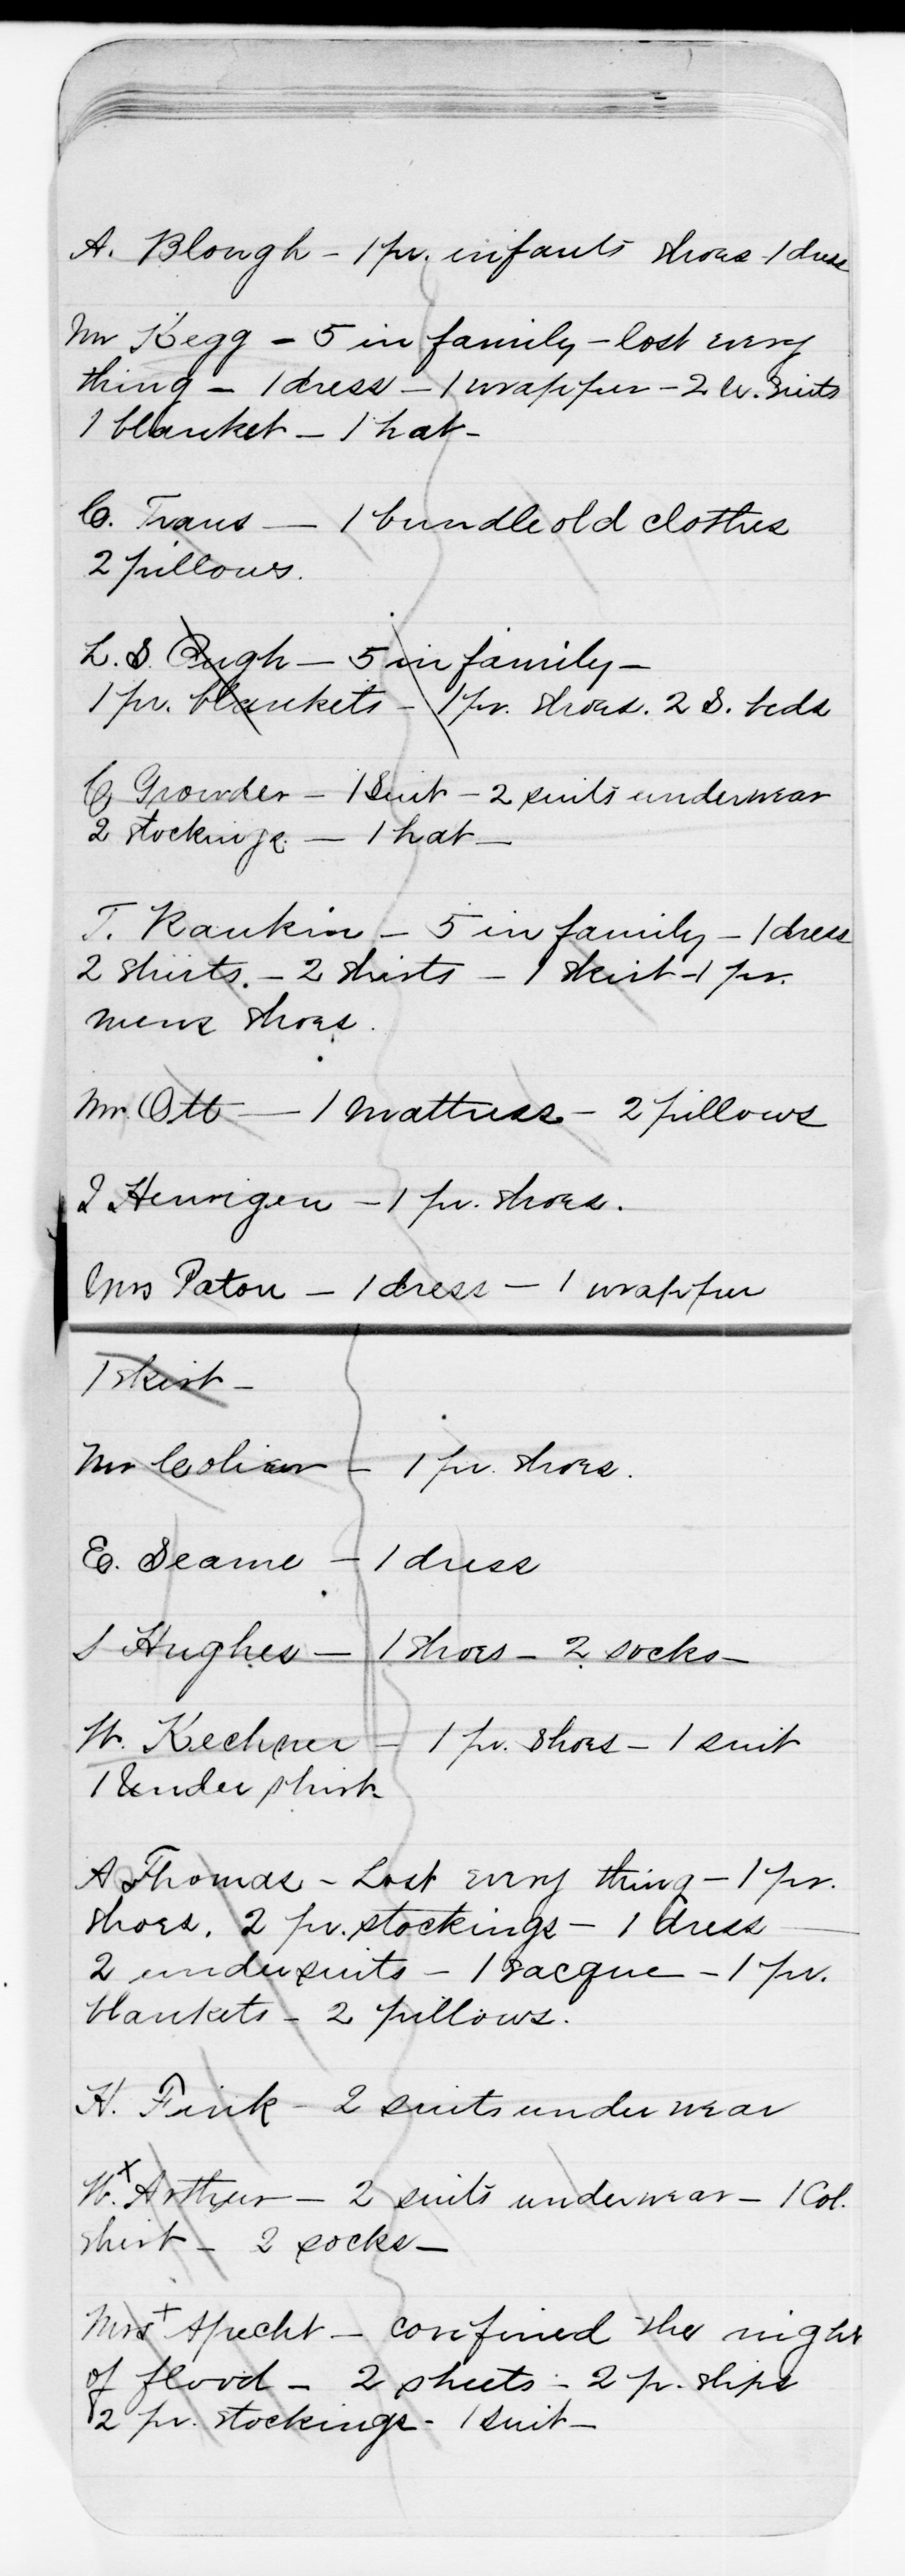 A. Blough - 1 pr. infants shoes - 1 dress
Mr Kegg - 5 in family - lost every
thing - 1 dress - 1 wrapper - 2 u. suits
1 blanket - 1 hat -
C. Trans - 1 bundle old clothes
2 pillows.
L. S. Pugh - 5 in family -
1 pr. blankets - 1 pr. shoes. 2 S. beds
C Growden - 1 Suit - 2 suits underwear
2 stockings. - 1 hat -
T. Rankin - 5 in family - 1 dress
2 shirts. - 2 shirts - 1 skirt - 1 pr.
mens shoes.
Mr. Ott - 1 mattress - 2 pillows
Henrigen - 1 pr. shoes.
Mrs Paton - 1 dress - 1 wrapper
1 skirt -
Mr - 1 pr. shoes.
E. Seame - 1 dress
S Hughes - 1 shoes - 2 socks -
W. Kechner - 1 pr. shoes - 1 suit
1 under shirt
A Thomas - Lost every thing - 1 pr.
shoes. 2 pr. stockings - 1 dress -
2 undersuits - 1 sacque - 1 pr.
blankets - 2 pillows.
H. Fink - 2 suits under wear
W. x Arthur - 2 suits underwear - 1 Col.
shirt - 2 socks -
Mrs + Specht - confined the night
of flood - 2 sheets - 2 p. slips
2 pr. stockings - 1 suit -